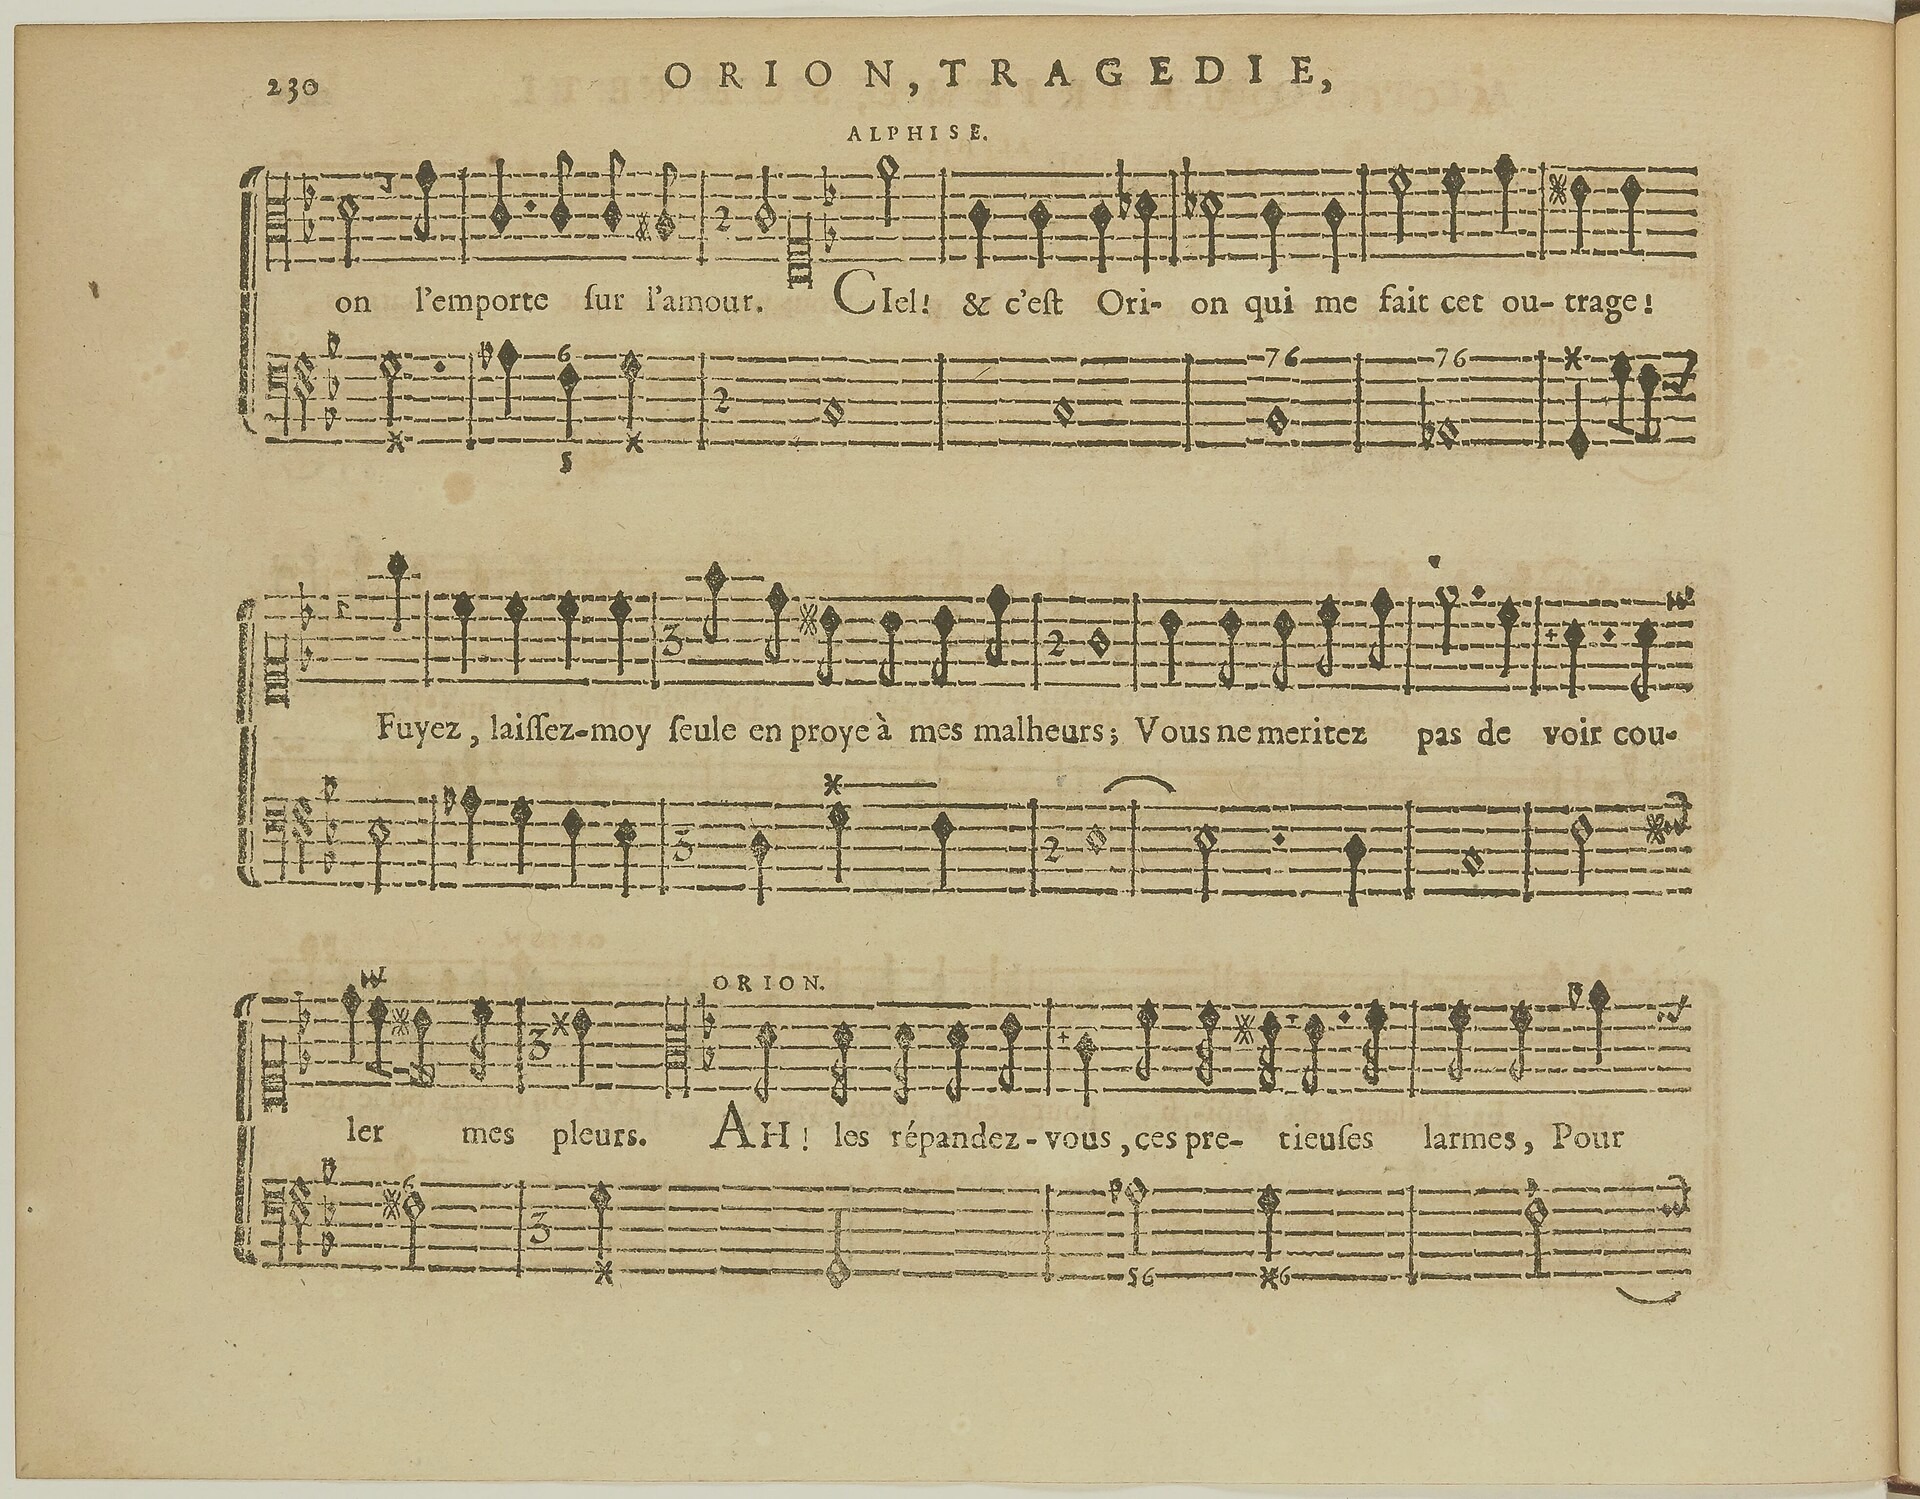 230
ORION, TRAGEDIE,
ALPHISE.
on l'emporte ſur l'amour. CIel! & c'eſt Ori- on qui me fait cet ou- trage!
Fuyez, laiſſez-moy ſeule en proye à mes malheurs; Vous ne meritez pas de voir cou-
ORION.
ler mes pleurs. AH! les répandez-vous, ces pre- tieuſes larmes, Pour